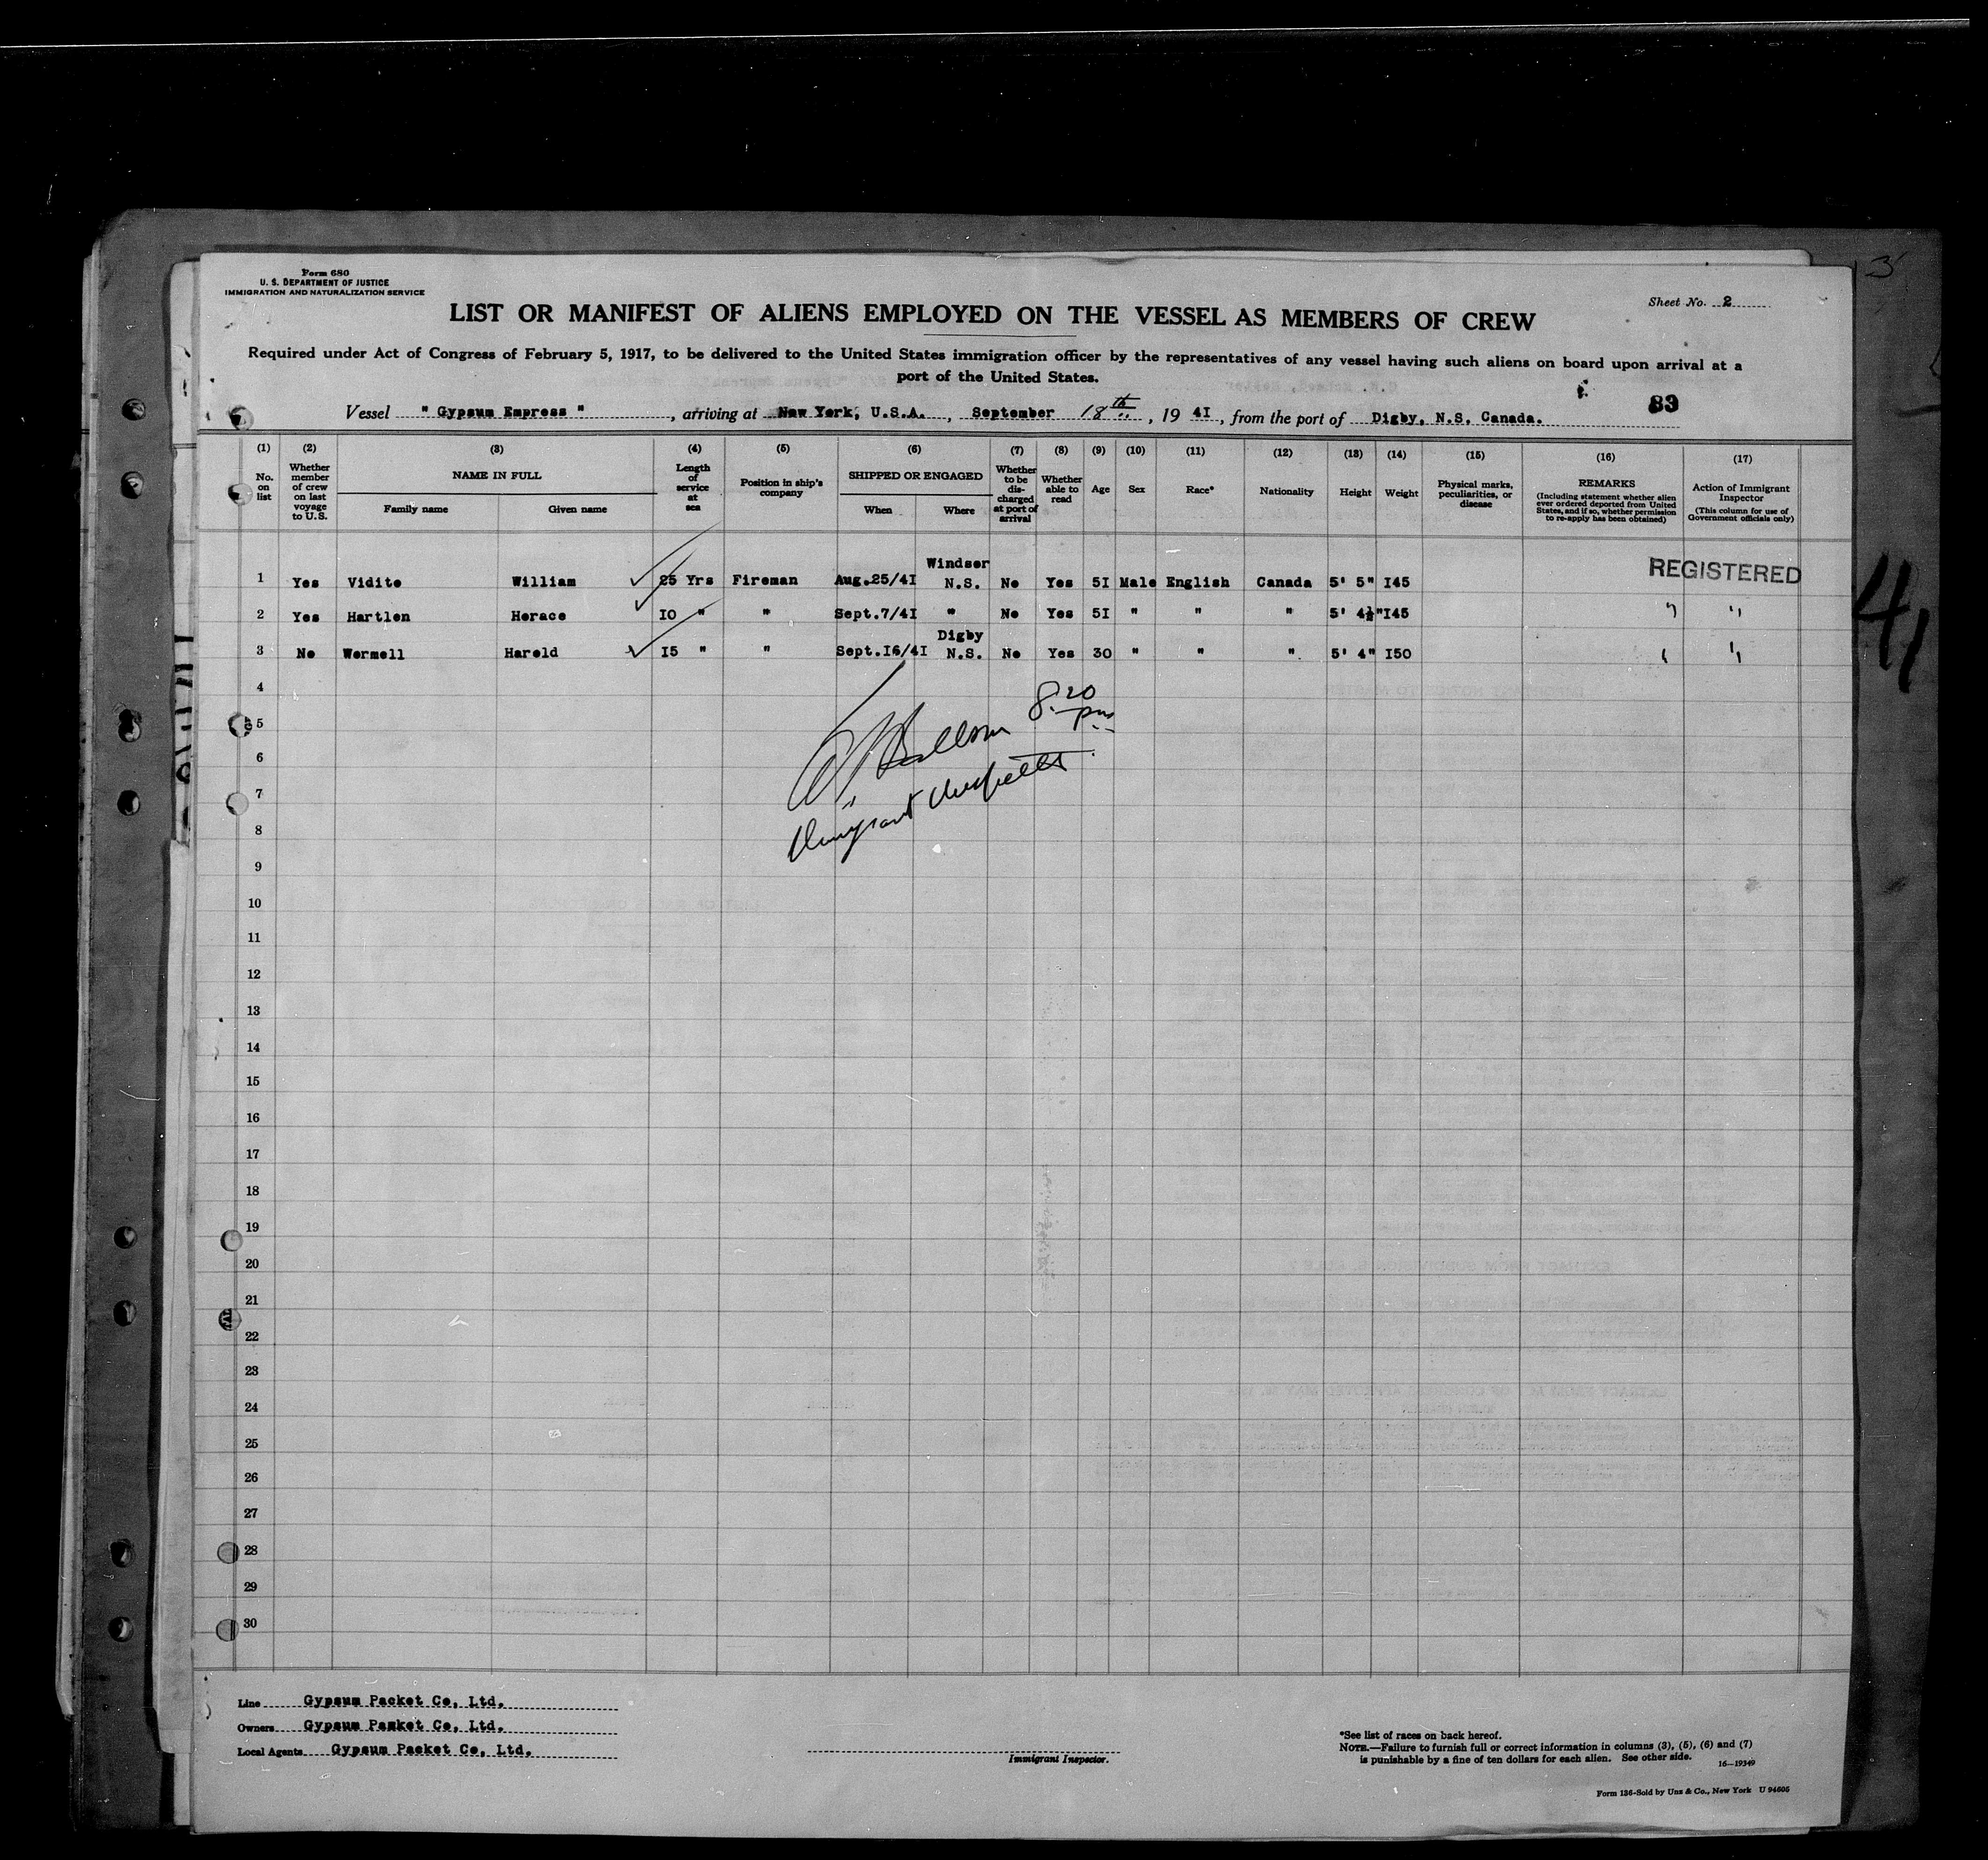 Form 680
U. S. DEPARTMENT OF JUSTICE
IMMIGRATION AND NATURALIZATION SERVICE
Sheet No. 2
LIST OR MANIFEST OF ALIENS EMPLOYED ON THE VESSEL AS MEMBERS OF CREW
Required under Act of Congress of February 5, 1917, to be delivered to the United States immigration officer by the representatives of any vessel having such aliens on board upon arrival at a
port of the United States.
83
Vessel " Gypsum Empress ", arriving at New York, U.S.A., September 18th, 19 4I, from the port of Digby, N.S. Canada.
(1) (2) (3) (4) (5) (6) (7) (8) (9) (10) (11) (12) (13) (14) (15) (16) (17)
No. on list
Whether member of crew on last voyage to U.S.
NAME IN FULL
Family name Given name
Length of service at sea
Position in ship's company
SHIPPED OR ENGAGED
When Where
Whether to be discharged at port of arrival
Whether able to read
Age
Sex
Race*
Nationality
Height
Weight
Physical marks, peculiarities, or disease
REMARKS
(Including statement whether alien ever ordered deported from United States, and if so, whether permission to re-apply has been obtained)
Action of Immigrant Inspector
(This column for use of Government officials only)
1 Yes Vidito William 25 Yrs Fireman Aug.25/4I Windsor N.S. No Yes 5I Male English Canada 5' 5" I45 REGISTERED
2 Yes Hartlen Horace I0 " " Sept.7/4I " No Yes 5I " " " 5' 4½" I45 " "
3 No Wormell Harold I5 " " Sept.I6/4I Digby N.S. No Yes 30 " " " 5' 4" I50 " "
4
5
6
7
8
9
10
11
12
13
14
15
16
17
18
19
20
21
22
23
24
25
26
27
28
29
30
8:20 pm
41
Line Gypsum Packet Co, Ltd.
Owners Gypsum Packet Co, Ltd.
Local Agents Gypsum Packet Co, Ltd.
Immigrant Inspector.
*See list of races on back hereof.
NOTE.—Failure to furnish full or correct information in columns (3), (5), (6) and (7)
is punishable by a fine of ten dollars for each alien. See other side.
16—19349
Form 136-Sold by Unz & Co., New York U 94606